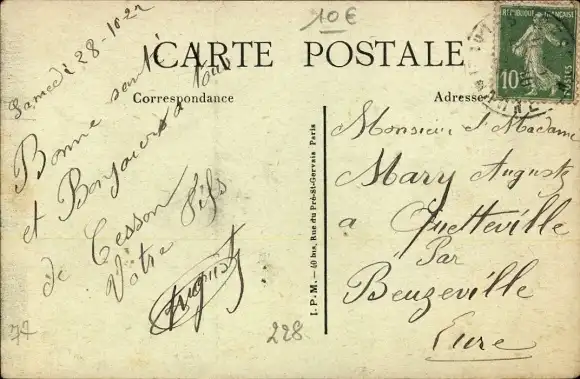 10€
CARTE POSTALE
Correspondance
Adresse
RÉPUBLIQUE FRANÇAISE
10
POSTES
Samedi 28-10 22
Bonne santé
et Bonjour à tous
de Cesson
Votre fils
August
77
228
I. P. M. — 40 bis, Rue du Pré-St-Gervais Paris
Monsieur & Madame
Mary Auguste
a Quetteville
Par
Beuzeville
Eure